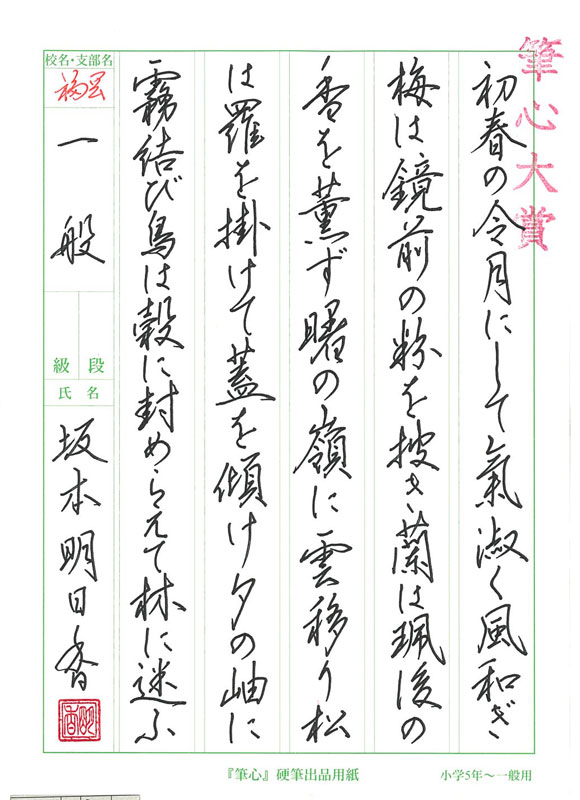 筆心大賞
初春の令月にして氣淑く風和ぎ
梅は鏡前の粉を披き蘭は珮後の
香を薫ず曙の嶺に雲移り松
は羅を掛けて蓋を傾け夕の岫に
霧結び鳥は縠に封められて林に迷ふ
校名・支部名
福岡
一般
級 段
氏名
坂本明日香
『筆心』硬筆出品用紙
小学5年～一般用